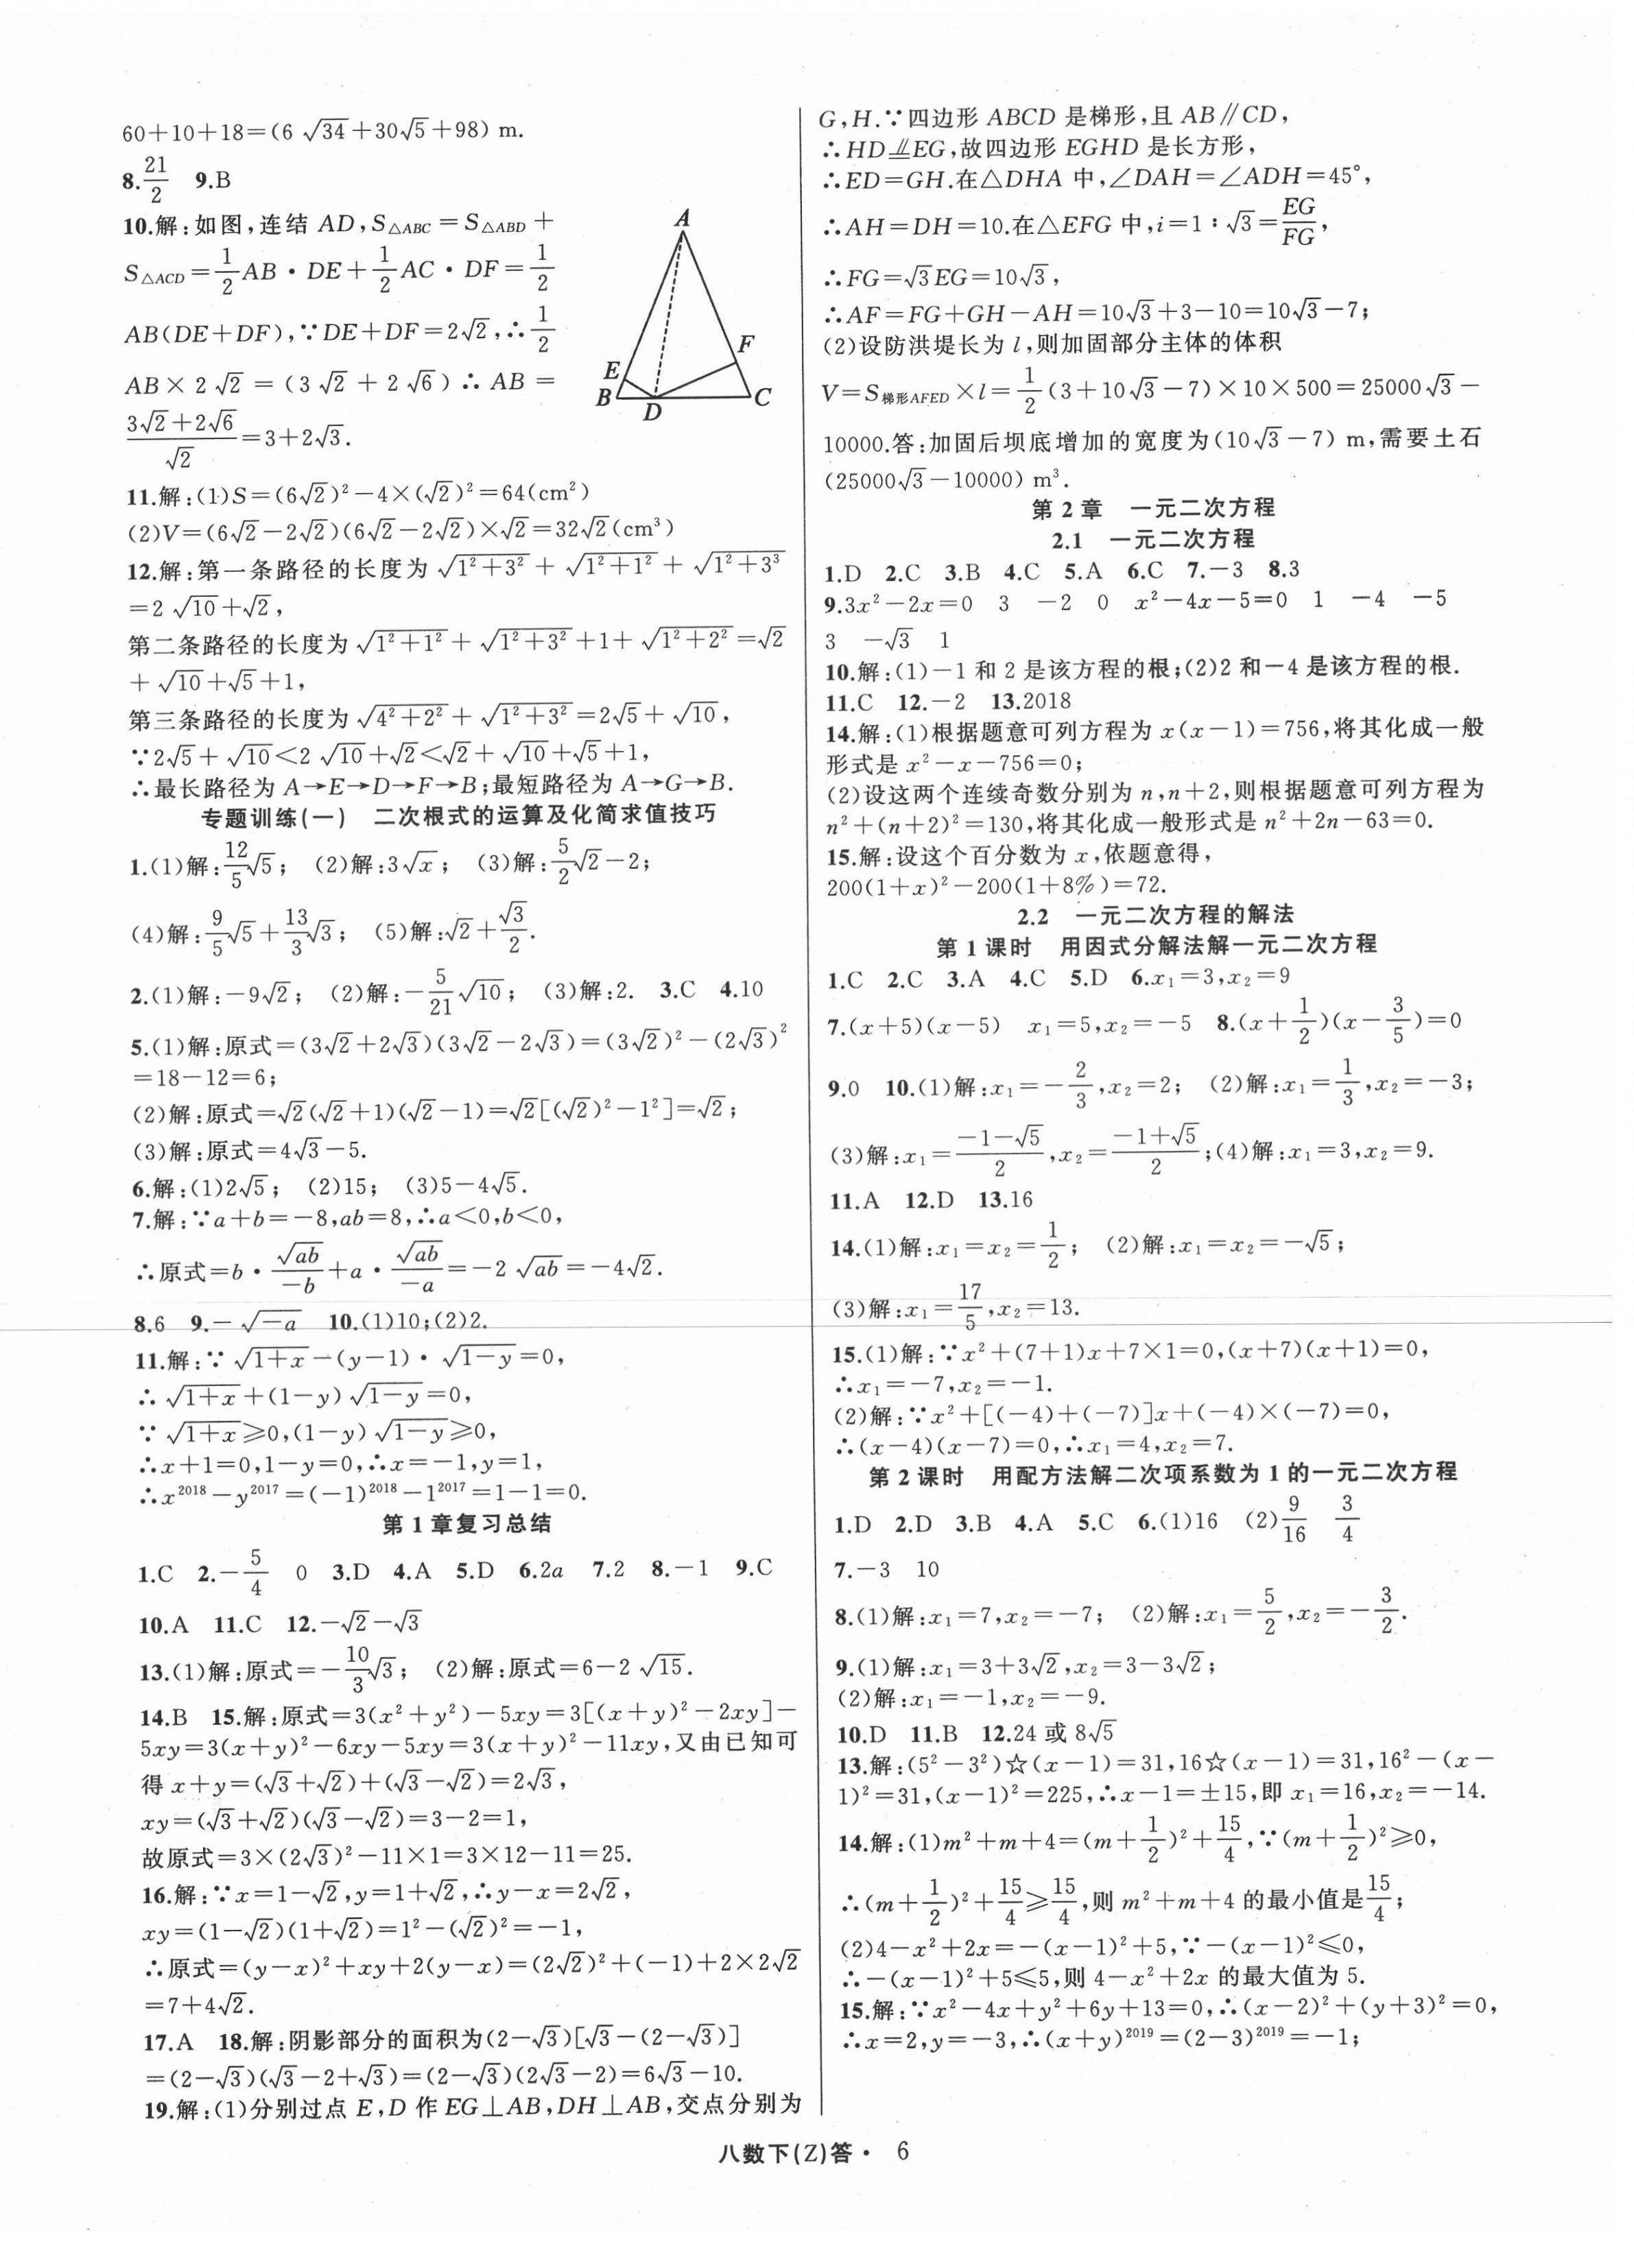 60+10+18=(6√34+30√5+98) m.
8.21/2 9.B
10.解:如图,连结 AD,S△ABC=S△ABD+
S△ACD=1/2AB·DE+1/2AC·DF=1/2
AB(DE+DF),∵DE+DF=2√2,∴1/2
AB×2√2=(3√2+2√6)∴AB=
(3√2+2√6)/√2=3+2√3.
A
E
B
D
F
C
11.解:(1)S=(6√2)²-4×(√2)²=64(cm²)
(2)V=(6√2-2√2)(6√2-2√2)×√2=32√2(cm³)
12.解:第一条路径的长度为√(1²+3²)+√(1²+1²)+√(1²+3³)
=2√10+√2,
第二条路径的长度为√(1²+1²)+√(1²+3²)+1+√(1²+2²)=√2
+√10+√5+1,
第三条路径的长度为√(4²+2²)+√(1²+3²)=2√5+√10,
∵2√5+√10<2√10+√2<√2+√10+√5+1,
∴最长路径为 A→E→D→F→B;最短路径为 A→G→B.
专题训练(一) 二次根式的运算及化简求值技巧
1.(1)解:12/5√5; (2)解:3√x; (3)解:5/2√2-2;
(4)解:9/5√5+13/3√3; (5)解:√2+√3/2.
2.(1)解:-9√2; (2)解:-5/21√10; (3)解:2. 3.C 4.10
5.(1)解:原式=(3√2+2√3)(3√2-2√3)=(3√2)²-(2√3)²
=18-12=6;
(2)解:原式=√2(√2+1)(√2-1)=√2[(√2)²-1²]=√2;
(3)解:原式=4√3-5.
6.解:(1)2√5; (2)15; (3)5-4√5.
7.解:∵a+b=-8,ab=8,∴a<0,b<0,
∴原式=b·√ab/-b+a·√ab/-a=-2√ab=-4√2.
8.6 9.-√-a 10.(1)10;(2)2.
11.解:∵√(1+x)-(y-1)·√(1-y)=0,
∴√(1+x)+(1-y)√(1-y)=0,
∵√(1+x)≥0,(1-y)√(1-y)≥0,
∴x+1=0,1-y=0,∴x=-1,y=1,
∴x²⁰¹⁸-y²⁰¹⁷=(-1)²⁰¹⁸-1²⁰¹⁷=1-1=0.
第 1 章复习总结
1.C 2.-5/4 0 3.D 4.A 5.D 6.2a 7.2 8.-1 9.C
10.A 11.C 12.-√2-√3
13.(1)解:原式=-10/3√3; (2)解:原式=6-2√15.
14.B 15.解:原式=3(x²+y²)-5xy=3[(x+y)²-2xy]-
5xy=3(x+y)²-6xy-5xy=3(x+y)²-11xy,又由已知可
得 x+y=(√3+√2)+(√3-√2)=2√3,
xy=(√3+√2)(√3-√2)=3-2=1,
故原式=3×(2√3)²-11×1=3×12-11=25.
16.解:∵x=1-√2,y=1+√2,∴y-x=2√2,
xy=(1-√2)(1+√2)=1²-(√2)²=-1,
∴原式=(y-x)²+xy+2(y-x)=(2√2)²+(-1)+2×2√2
=7+4√2.
17.A 18.解:阴影部分的面积为(2-√3)[√3-(2-√3)]
=(2-√3)(√3-2+√3)=(2-√3)(2√3-2)=6√3-10.
19.解:(1)分别过点 E,D 作 EG⊥AB,DH⊥AB,交点分别为
G,H.∵四边形 ABCD 是梯形,且 AB∥CD,
∴HD⫫EG,故四边形 EGHD 是长方形,
∴ED=GH.在△DHA 中,∠DAH=∠ADH=45°,
∴AH=DH=10.在△EFG 中,i=1∶√3=EG/FG,
∴FG=√3EG=10√3,
∴AF=FG+GH-AH=10√3+3-10=10√3-7;
(2)设防洪堤长为 l,则加固部分主体的体积
V=S梯形AFED×l=1/2(3+10√3-7)×10×500=25000√3-
10000.答:加固后坝底增加的宽度为(10√3-7) m,需要土石
(25000√3-10000) m³.
第 2 章 一元二次方程
2.1 一元二次方程
1.D 2.C 3.B 4.C 5.A 6.C 7.-3 8.3
9.3x²-2x=0 3 -2 0 x²-4x-5=0 1 -4 -5
3 -√3 1
10.解:(1)-1 和 2 是该方程的根;(2)2 和-4 是该方程的根.
11.C 12.-2 13.2018
14.解:(1)根据题意可列方程为 x(x-1)=756,将其化成一般
形式是 x²-x-756=0;
(2)设这两个连续奇数分别为 n,n+2,则根据题意可列方程为
n²+(n+2)²=130,将其化成一般形式是 n²+2n-63=0.
15.解:设这个百分数为 x,依题意得,
200(1+x)²-200(1+8%)=72.
2.2 一元二次方程的解法
第 1 课时 用因式分解法解一元二次方程
1.C 2.C 3.A 4.C 5.D 6.x₁=3,x₂=9
7.(x+5)(x-5) x₁=5,x₂=-5 8.(x+1/2)(x-3/5)=0
9.0 10.(1)解:x₁=-2/3,x₂=2; (2)解:x₁=1/3,x₂=-3;
(3)解:x₁=(-1-√5)/2,x₂=(-1+√5)/2;(4)解:x₁=3,x₂=9.
11.A 12.D 13.16
14.(1)解:x₁=x₂=1/2; (2)解:x₁=x₂=-√5;
(3)解:x₁=17/5,x₂=13.
15.(1)解:∵x²+(7+1)x+7×1=0,(x+7)(x+1)=0,
∴x₁=-7,x₂=-1.
(2)解:∵x²+[(-4)+(-7)]x+(-4)×(-7)=0,
∴(x-4)(x-7)=0,∴x₁=4,x₂=7.
第 2 课时 用配方法解二次项系数为 1 的一元二次方程
1.D 2.D 3.B 4.A 5.C 6.(1)16 (2)9/16 3/4
7.-3 10
8.(1)解:x₁=7,x₂=-7; (2)解:x₁=5/2,x₂=-3/2.
9.(1)解:x₁=3+3√2,x₂=3-3√2;
(2)解:x₁=-1,x₂=-9.
10.D 11.B 12.24 或 8√5
13.解:(5²-3²)☆(x-1)=31,16☆(x-1)=31,16²-(x-
1)²=31,(x-1)²=225,∴x-1=±15,即 x₁=16,x₂=-14.
14.解:(1)m²+m+4=(m+1/2)²+15/4,∵(m+1/2)²≥0,
∴(m+1/2)²+15/4≥15/4,则 m²+m+4 的最小值是15/4;
(2)4-x²+2x=-(x-1)²+5,∵-(x-1)²≤0,
∴-(x-1)²+5≤5,则 4-x²+2x 的最大值为 5.
15.解:∵x²-4x+y²+6y+13=0,∴(x-2)²+(y+3)²=0,
∴x=2,y=-3,∴(x+y)²⁰¹⁹=(2-3)²⁰¹⁹=-1;
八数下(Z)答· 6